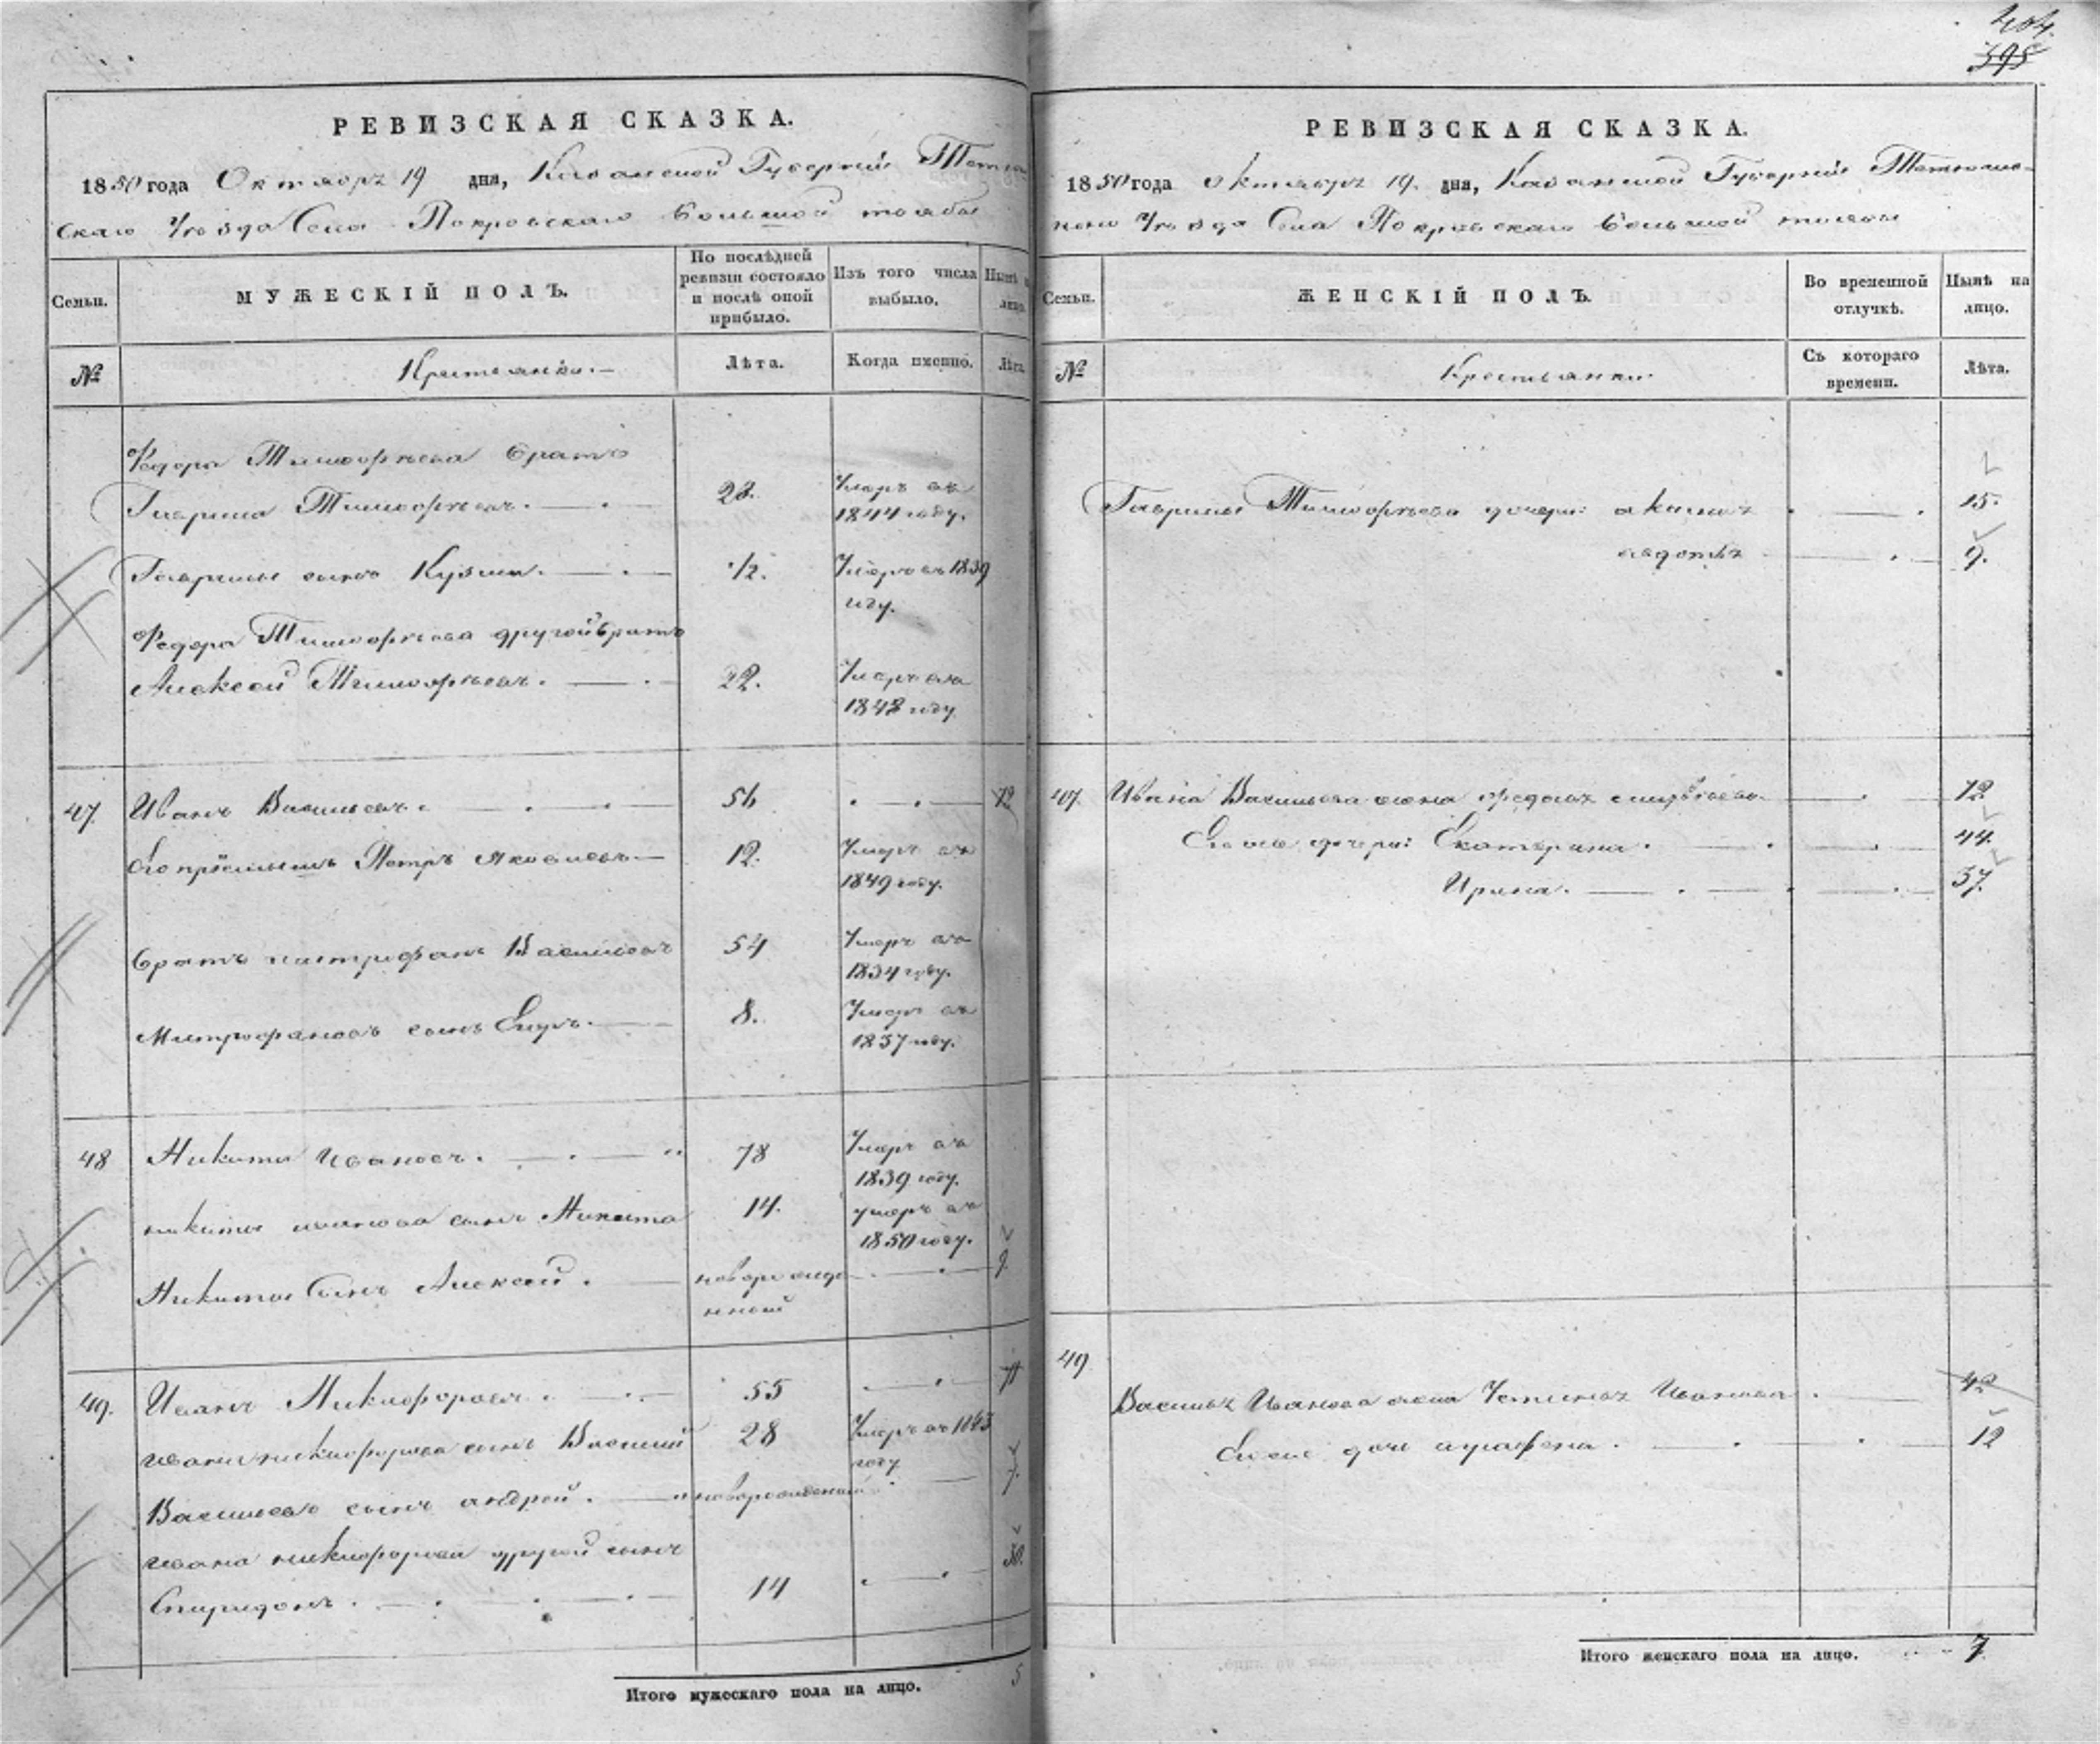 404.
395
РЕВИЗСКАЯ СКАЗКА.
1850 года Октября 19 дня, Казанской Губерніи Тетю
скаго Уѣзда Села Покровскаго Большой тоябы
Семьи.
МУЖЕСКІЙ ПОЛЪ.
По послѣдней ревизіи состояло и послѣ оной прибыло.
Изъ того числа выбыло.
Нынѣ на лицо.
№
Крестьянъ.
Лѣта.
Когда именно.
Лѣта.
Федора Тимофѣева братъ
Гаврила Тимофѣевъ. 23. Умеръ въ
1844 году.
Гаврилы сынъ Кузма. 1/2. Умеръ въ 1839
году.
Федора Тимофѣева другой братъ
Алексей Тимофѣевъ. 22. Умеръ въ
1848 году
47. Иванъ Васильевъ. 56 72
Его пріемышъ Петръ Яковлевъ 12. Умеръ въ
1849 году.
братъ митрофанъ Васильевъ 54 Умеръ въ
1834 году.
Митрофановъ сынъ Егоръ. 8. Умеръ въ
1837 году.
48 Никита Ивановъ. 78 Умеръ въ
1839 году.
никиты иванова сынъ Никита 14. умеръ въ
1850 году.
Никиты Сынъ Алексей. новорожде 9.
нный
49. Иванъ Никифоровъ. 55 71
ивана никифорова сынъ Василий 28 Умеръ въ 1843
году
Васильевъ сынъ андрей. новорожденный 7.
ивана никифорова другой сынъ
Спиридонъ. 14 30.
Итого мужескаго пола на лицо. 5
РЕВИЗСКАЯ СКАЗКА.
1850 года октября 19. дня, Казанской Губерніи Тетюш-
скаго Уѣзда Села Покровскаго большой тоябы
Семьи.
ЖЕНСКІЙ ПОЛЪ.
Во временной отлучкѣ.
Нынѣ на лицо.
№
Крестьянки
Съ котораго времени.
Лѣта.
Гаврилы Тимофѣева дочери: акилина 15.
авдотья 9.
47. Ивана Васильева жена 72
Его же дочери: Екатерина. 44.
Ирина. 37.
49.
Василья Иванова жена Устинья Иванова. 42
Его же дочь аграфена. 12
Итого женскаго пола на лицо. 7